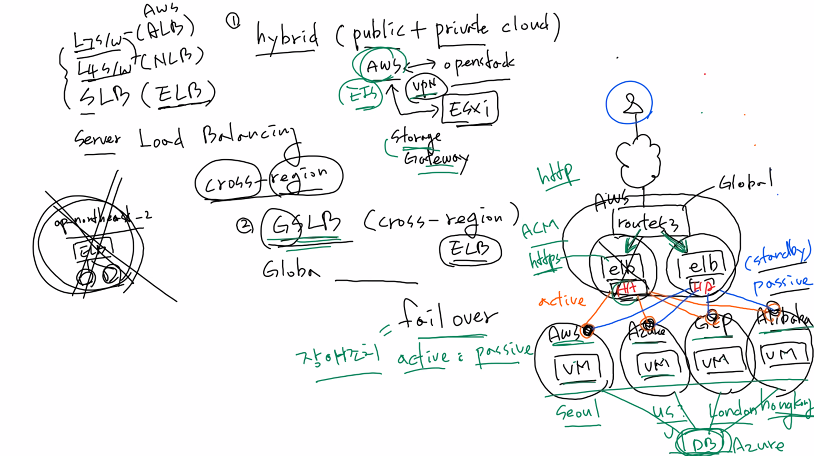 AWS
L7 s/w - (ALB)
L4 s/w - (NLB)
SLB (ELB)
Server Load Balancing
① hybrid (public + private cloud)
AWS ↔ openstack
VPN
ESXi
Storage
Gateway
cross-region
② GSLB (cross-region)
ELB
Global
ELB
fail over
= 장애조치 active : passive
Global
AWS
route53
http
ACM
https
elb
elb
HA
HA
(standby)
passive
active
AWS
Azure
GCP
Alibaba
VM
VM
VM
VM
Seoul
US
London
hongkong
DB
Azure